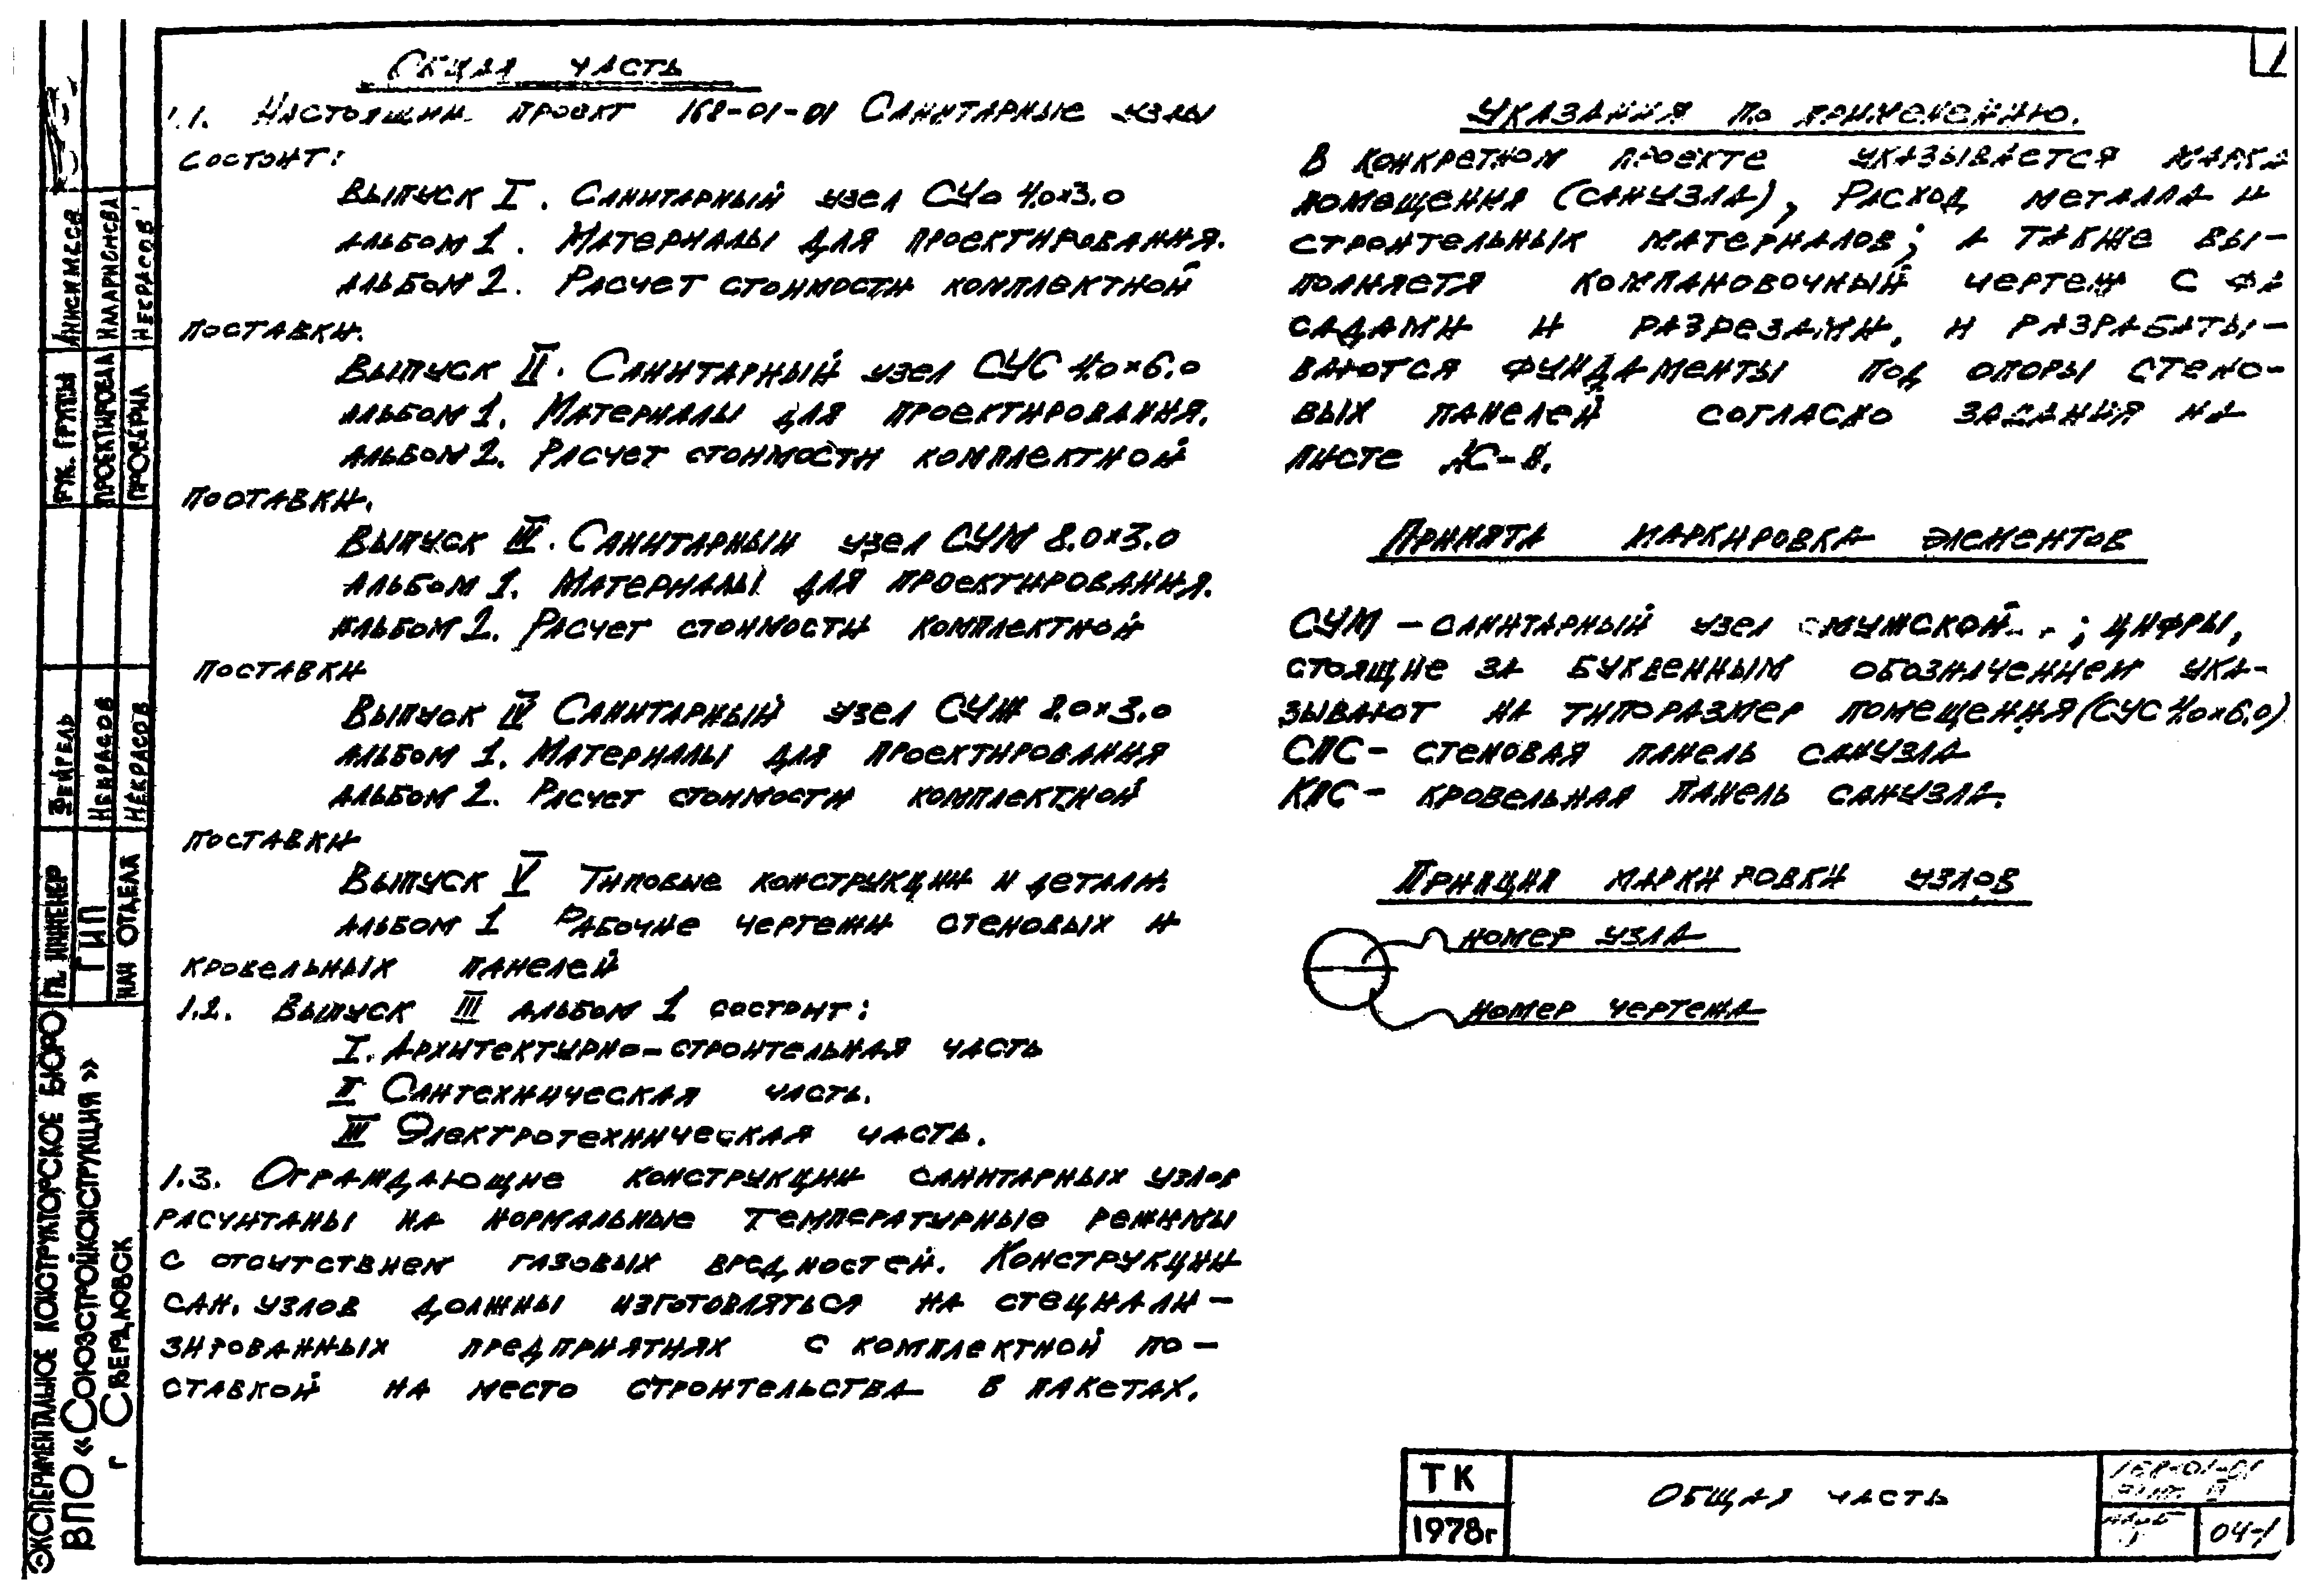 Общая часть
1.1. Настоящий проект 168-01-01 Санитарные узлы
состоит:
Выпуск I. Санитарный узел СУо 4.0×3.0
альбом 1. Материалы для проектирования.
альбом 2. Расчет стоимости комплектной
поставки.
Выпуск II. Санитарный узел СУС 4.0×6.0
альбом 1. Материалы для проектирования.
альбом 2. Расчет стоимости комплектной
поставки.
Выпуск III. Санитарный узел СУМ 8.0×3.0
альбом 1. Материалы для проектирования.
альбом 2. Расчет стоимости комплектной
поставки
Выпуск IV Санитарный узел СУЖ 8.0×3.0
альбом 1. Материалы для проектирования
альбом 2. Расчет стоимости комплектной
поставки
Выпуск V Типовые конструкции и детали.
альбом 1 Рабочие чертежи стеновых и
кровельных панелей
1.2. Выпуск III альбом 1 состоит:
I. Архитектурно-строительная часть
II Сантехническая часть.
III Электротехническая часть.
1.3. Ограждающие конструкции санитарных узлов
расчитаны на нормальные температурные режимы
с отсутствием газовых вредностей. Конструкции
сан. узлов должны изготовляться на специали-
зированных предприятиях с комплектной по-
ставкой на место строительства в пакетах.
Указания по применению.
В конкретном проекте указывается марка
помещения (санузла), расход металла и
строительных материалов; а также вы-
полняетя компановочный чертеж с фа
садами и разрезами, и разрабаты-
ваются фундаменты под опоры стено-
вых панелей согласно задания на
листе АС-8.
Принята маркировка элементов
СУМ – санитарный узел мужской ; цифры,
стоящие за буквенным обозначением ука-
зывают на типоразмер помещения (СУС 4.0×6.0)
СПС – стеновая панель санузла
КПС – кровельная панель санузла.
Принцип маркировки узлов
номер узла
номер чертежа
ТК
1978г
Общая часть
168-01-01
альб
1
04-1
1
Рук. группы Анисимова
Проектировал Илларионова
Проверил Некрасов
Гл. инженер Фейгель
ГИП Некрасов
Нач отдела Некрасов
Экспериментальное конструкторское бюро
ВПО «Союзстройконструкция»
г Свердловск